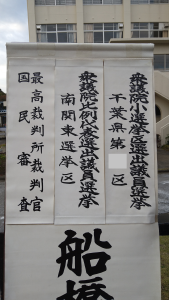 衆議院小選挙区選出議員選挙
千葉県第 区
衆議院比例代表選出議員選挙
南関東選挙区
最高裁判所裁判官
国民審査
船橋